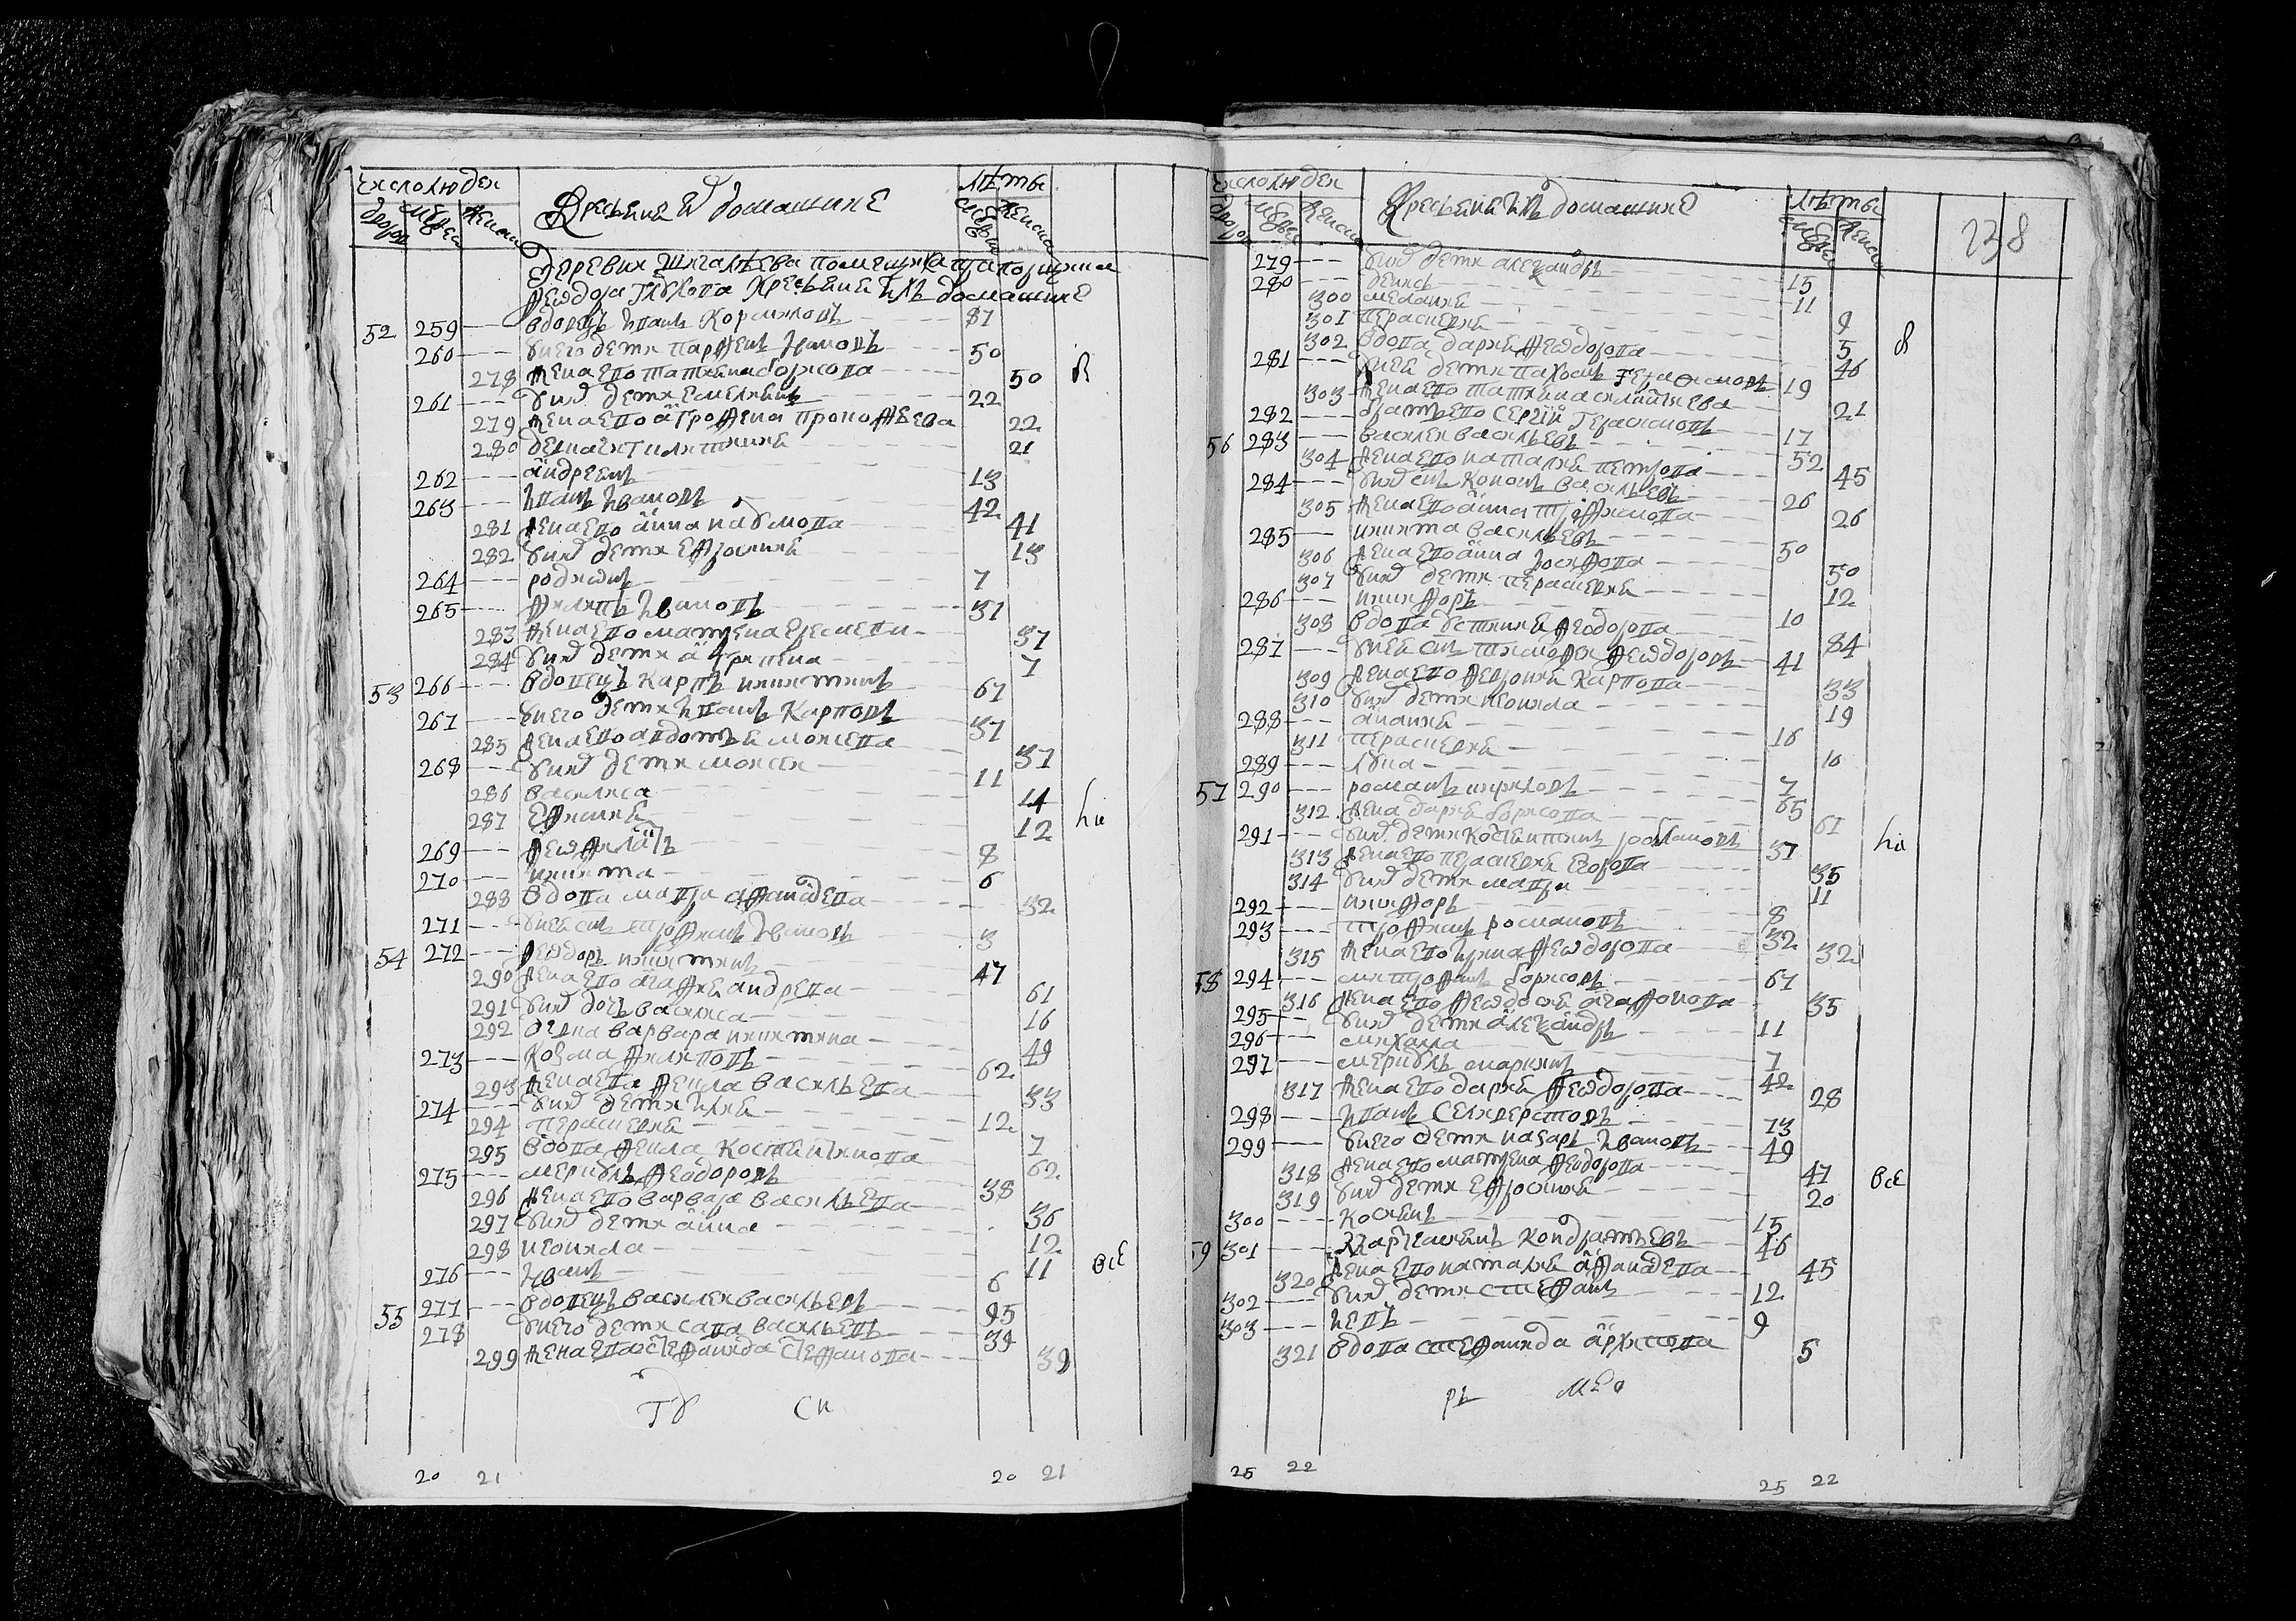 число людей Крестьяне и их домашние Лѣты
дворов мужеска женска мужеска женска
Деревни Шигалѣева помещика прапорщика
Феѡдора Глѣбова крестьяне и ихъ домашние
52 259 вдовецъ Иванъ Корниловъ 87
260 у него дети Парфенъ Ивановъ 50
278 жена ево Татияна Борисова 50
261 у них дети Емелиянъ 22
279 жена ево Агрофена Прокофьева 22
280 21
262 Андреянъ 13
263 Иванъ Ивановъ 42
281 жена ево Анна Наумова 41
282 у них дети Ефросиния 13
264 Родиѡнъ 7
265 Филипъ Ивановъ 37
283 жена ево Матрена Еремеева 37
284 у них дети Агрипена 7
53 266 вдовецъ Карпъ Никитинъ 67
267 у него дети Иванъ Карповъ 37
285 жена ево Авдотья Моисеева 37
268 у них дети Моисей 11
286 Василиса 14
287 Ефимия 12
269 Феѡфилатъ 8
270 Никита 6
288 вдова Мавра Афанасева 32
271 у ней сынъ Трофимъ Ивановъ 3
54 272 Феѡдоръ Никитинъ 47
290 жена ево Агафия Андреева 61
291 у них дочь Василиса 16
292 Варвара Никитина 49
273 Козма Филиповъ 62
293 жена ево Фекла Васильева 33
274 у них дети Илия 12
294 Перасковия 7
295 вдова Фекла Костянтинова 62
275 Меркулъ Феѡдоровъ 38
296 жена ево Варвара Васильева 36
297 у них дети Анна 12
298 Неонила 11
276 Иванъ 6
55 277 вдовецъ Василей Васильевъ 95
278 у него дети Сава Васильевъ 39
299 жена ева Стефанида Стефанова 39
20 21 20 21
число людей Крестьяне и ихъ домашние Лѣты
дворов мужеска женска мужеска женска
238
279 у них дети Алеѯандръ 15
280 Денисъ 11
300 Мелания 9
301 Перасковия 5
302 вдова Дария Феѡдорова 46
281 у ней дети Пахомъ Герасимовъ 19
303 жена ево Татияна 21
282 братъ ево Сергий Герасимовъ 17
56 283 Василей Васильевъ 52
304 жена ево Наталия Петрова 45
284 у них сынъ Кононъ Васильевъ 26
305 жена ево Анна Трофимова 26
285 Никита Васильевъ 50
306 жена ево Анна Иосифова 50
307 у них дети Перасковия 12
286 Никифоръ 10
308 вдова Устиния Феѡдорова 84
287 у ней сынъ Тимофей Феѡдоровъ 41
309 жена ево Феврония Карпова 33
310 у них дети Неонила 19
288 Анания 16
311 Перасковия 10
289 Лука 7
57 290 Романъ Кириловъ 65
312 жена Дария Борисова 61
291 у них дети Костянтинъ Романовъ 37
313 жена ево Перасковия Егорова 35
314 у них дети Мавра 11
292 Никифоръ 8
293 Трофимъ Романовъ 32
315 жена ево Ирина Феѡдорова 32
58 294 Митрофанъ Борисовъ 67
316 жена ево Феѡдосия Агафонова 35
295 у них дети Алеѯандръ 11
296 Михаила 7
297 Меркулъ Маркинъ 42
317 жена ево Дария Феѡдорова 28
298 Иванъ Селиверстовъ 73
299 у него дети Назаръ Ивановъ 49
318 жена ево Матрена Феѡдорова 47
319 у них дети Ефросиния 20
300 Косиянъ 15
59 301 Кондратьевъ 46
320 жена ево Наталия Афанасева 45
302 у них дети Стефанъ 12
303 9
321 вдова Стефанида Архипова 5
25 22 25 22